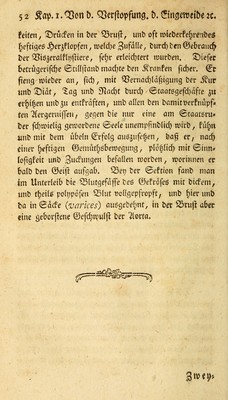 52 Kap. 1. Von d. Verstopfung, d. Eingeweide ꝛc.
keiten, Drücken in der Brust, und oft wiederkehrendes
heftiges Herzklopfen, welche Zufälle, durch den Gebrauch
der Viszeralklistiere, sehr erleichtert wurden. Dieser
betrügerische Stillstand machte den Kranken sicher. Er
fieng wieder an, sich, mit Vernachläßigung der Kur
und Diät, Tag und Nacht durch Staatsgeschäfte zu
erhitzen und zu entkräften, und allen den damit verknüpf-
ten Aergernissen, gegen die nur eine am Staatsru-
der schwielig gewordene Seele unempfindlich wird, kühn
und mit dem übeln Erfolg auszusetzen, daß er, nach
einer heftigen Gemüthsbewegung, plötzlich mit Sinn-
losigkeit und Zuckungen befallen worden, worinnen er
bald den Geist aufgab. Bey der Sektion fand man
im Unterleib die Blutgefässe des Gekröses mit dickem,
und theils polypösen Blut vollgepfropft, und hier und
da in Säcke (varices) ausgedehnt, in der Brust aber
eine geborstene Geschwulst der Aorta.
Zwey-